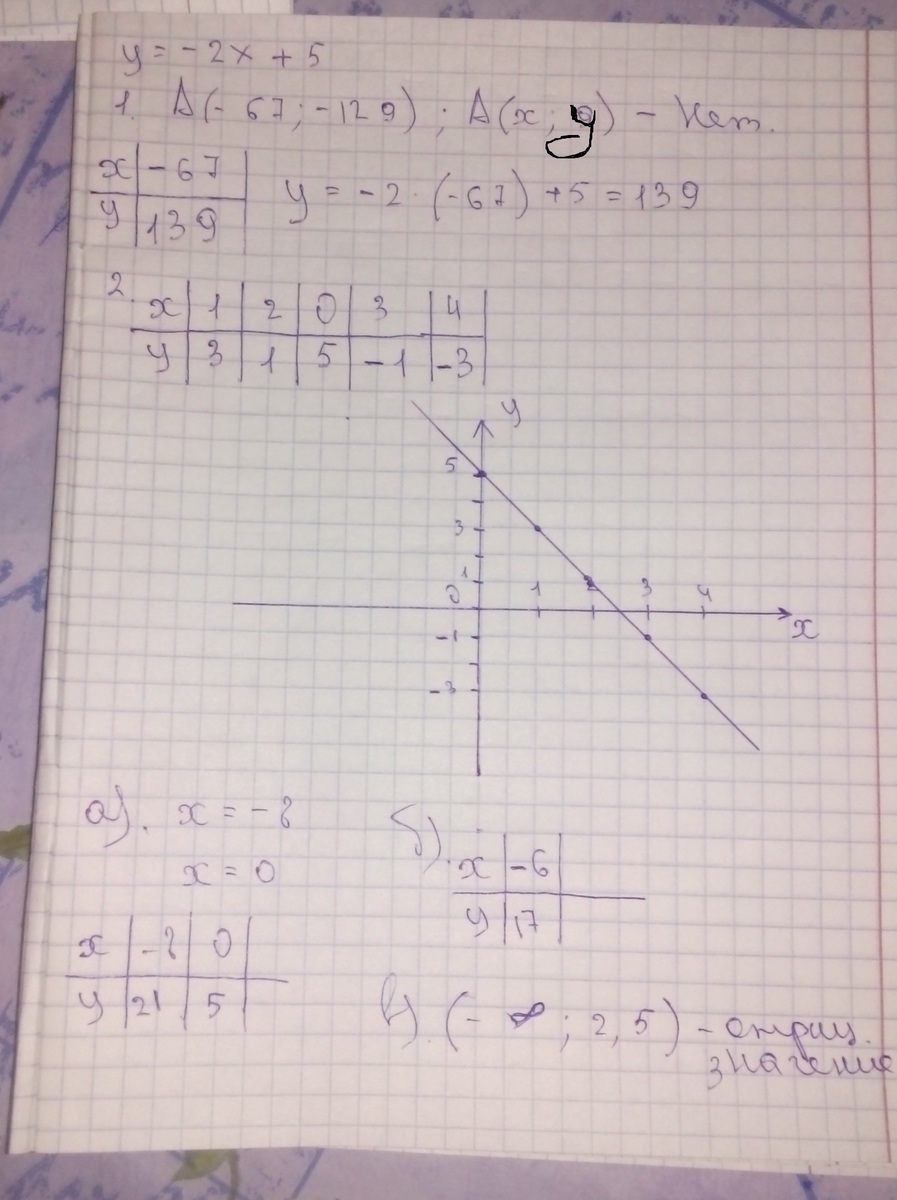 y = -2x + 5
1. A(-67; -129); A(x; y) - Нет.
x | -67
y | 139
y = -2·(-67) + 5 = 139
2.
x | 1 | 2 | 0 | 3 | 4
y | 3 | 1 | 5 | -1 | -3
y
5
3
1
0 1 2 3 4
x
-1
-3
а). x = -8
x = 0
x | -8 | 0
y | 21 | 5
б).
x | -6
y | 17
в). (-∞; 2,5) - отриц.
значение